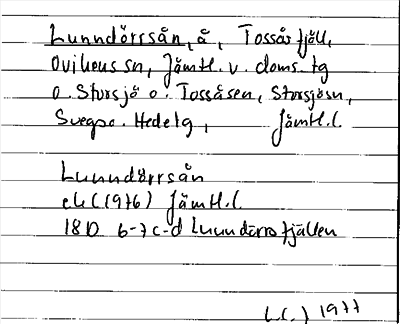 Lunndörrsån, å, Tossåsfjäll,
Ovikens sn, Jämtl. v. doms. tg
o. Storsjö o. Tossåsen, Storsjösn,
Svegs o. Hede tg, Jämtl. l.
Lunndörrsån
ek (1976) Jämtl. l.
18D 6-7 c-d Lunndörrsfjällen
1977